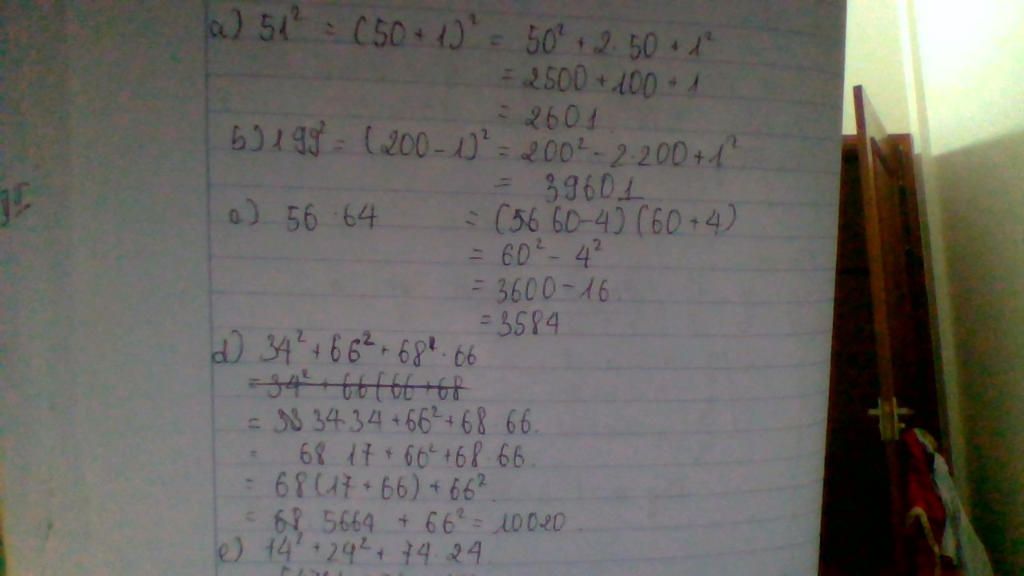 a) 51² = (50 + 1)² = 50² + 2. 50 + 1²
= 2500 + 100 + 1
= 2601
b) 199² = (200 - 1)² = 200² - 2.200 + 1²
= 39601
c) 56 . 64 = (56 60 - 4) (60 + 4)
= 60² - 4²
= 3600 - 16
= 3584
d) 34² + 66² + 68 . 66
= 34² + 66 (66 + 68
= 34.34 + 66² + 68 66.
= 68 . 17 + 66² + 68 66.
= 68 (17 + 66) + 66².
= 68 5664 + 66² = 10020
e) 74² + 24² + 74. 24